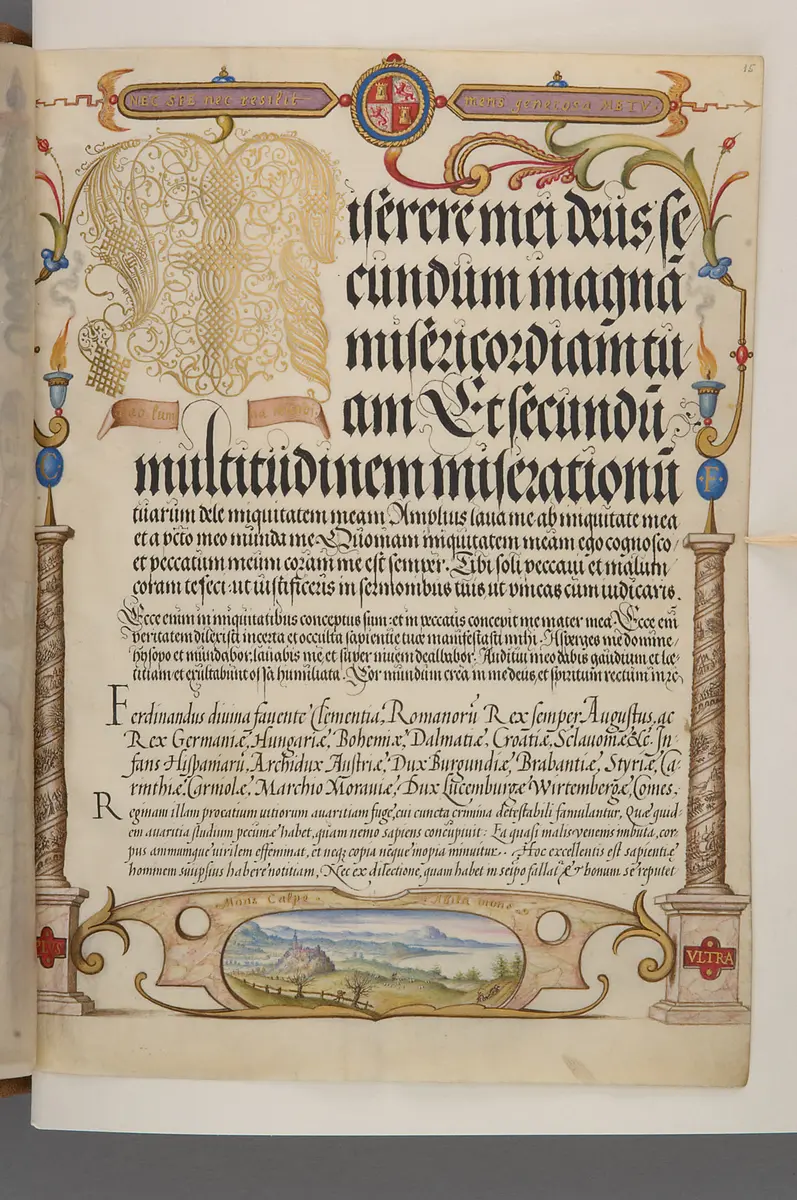 15
NEC SPE nec resilit
mens generosa METV.
Miserere mei deus, se
cundum magnā
misericordiam tu
am Et secundū
ad Lum
multitudinem miserationū
tuarum dele iniquitatem meam Amplius laua me ab iniquitate mea
et a pcto meo munda me Quoniam iniquitatem meam ego cognosco,
et peccatum meum coram me est semper. Tibi soli peccaui et malum
coram te feci: ut iustificeris in sermonibus tuis ut vincas cum iudicaris.
Ecce enim in iniquitatibus conceptus sum: et in peccatis concepit me mater mea. Ecce eni
veritatem dilexisti incerta et occulta sapientie tuæ manifestasti mihi. Asperges me domine
hysopo et mundabor, lauabis me, et super niuem dealbabor. Auditui meo dabis gaudium et læ-
titiam et exultabunt ossa humiliata. Cor mundum crea in me deus, et spiritum rectum
Ferdinandus diuina fauente Clementia, Romanorū Rex semper Augustus, ac
Rex Germaniæ, Hungariæ, Bohemiæ, Dalmatiæ, Croatiæ, Sclauoniæ &c. In-
fans Hispaniarū, Archidux Austriæ, Dux Burgundiæ, Brabantiæ, Styriæ, Ca-
rinthiæ, Carniolæ, Marchio Morauiæ, Dux Lucemburgæ Wirtembergæ, Comes.
Reginam illam procatium uitiorum auaritiam fuge, cui cuncta crimina detestabili famulantur, Quæ quid-
em auaritia studium pecuniæ habet, quam nemo sapiens concupiuit: Ea quasi malis uenenis imbuta, cor-
pus animumque uirilem effeminat, et neq; copia neque inopia minuitur. Hoc excellentis est sapientiæ
hominem suiipsius habere notitiam, Nec ex dilectione, quam habet in seipo fallat & bonum se reputet
C
F
Mons Calpe
Abila mons
PLVS
VLTRA